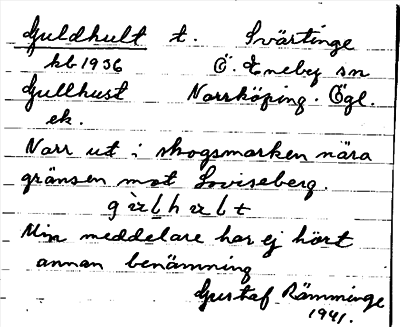 Guldhult t. Svärtinge
kb 1936 Ö. Eneby sn
Gullhust Norrköping. Ögl.
ek.
Norr ut i skogsmarken nära
gränsen mot Loviseberg.
Min meddelare har ej hört
annan benämning
Gustaf Rämminge
1941.